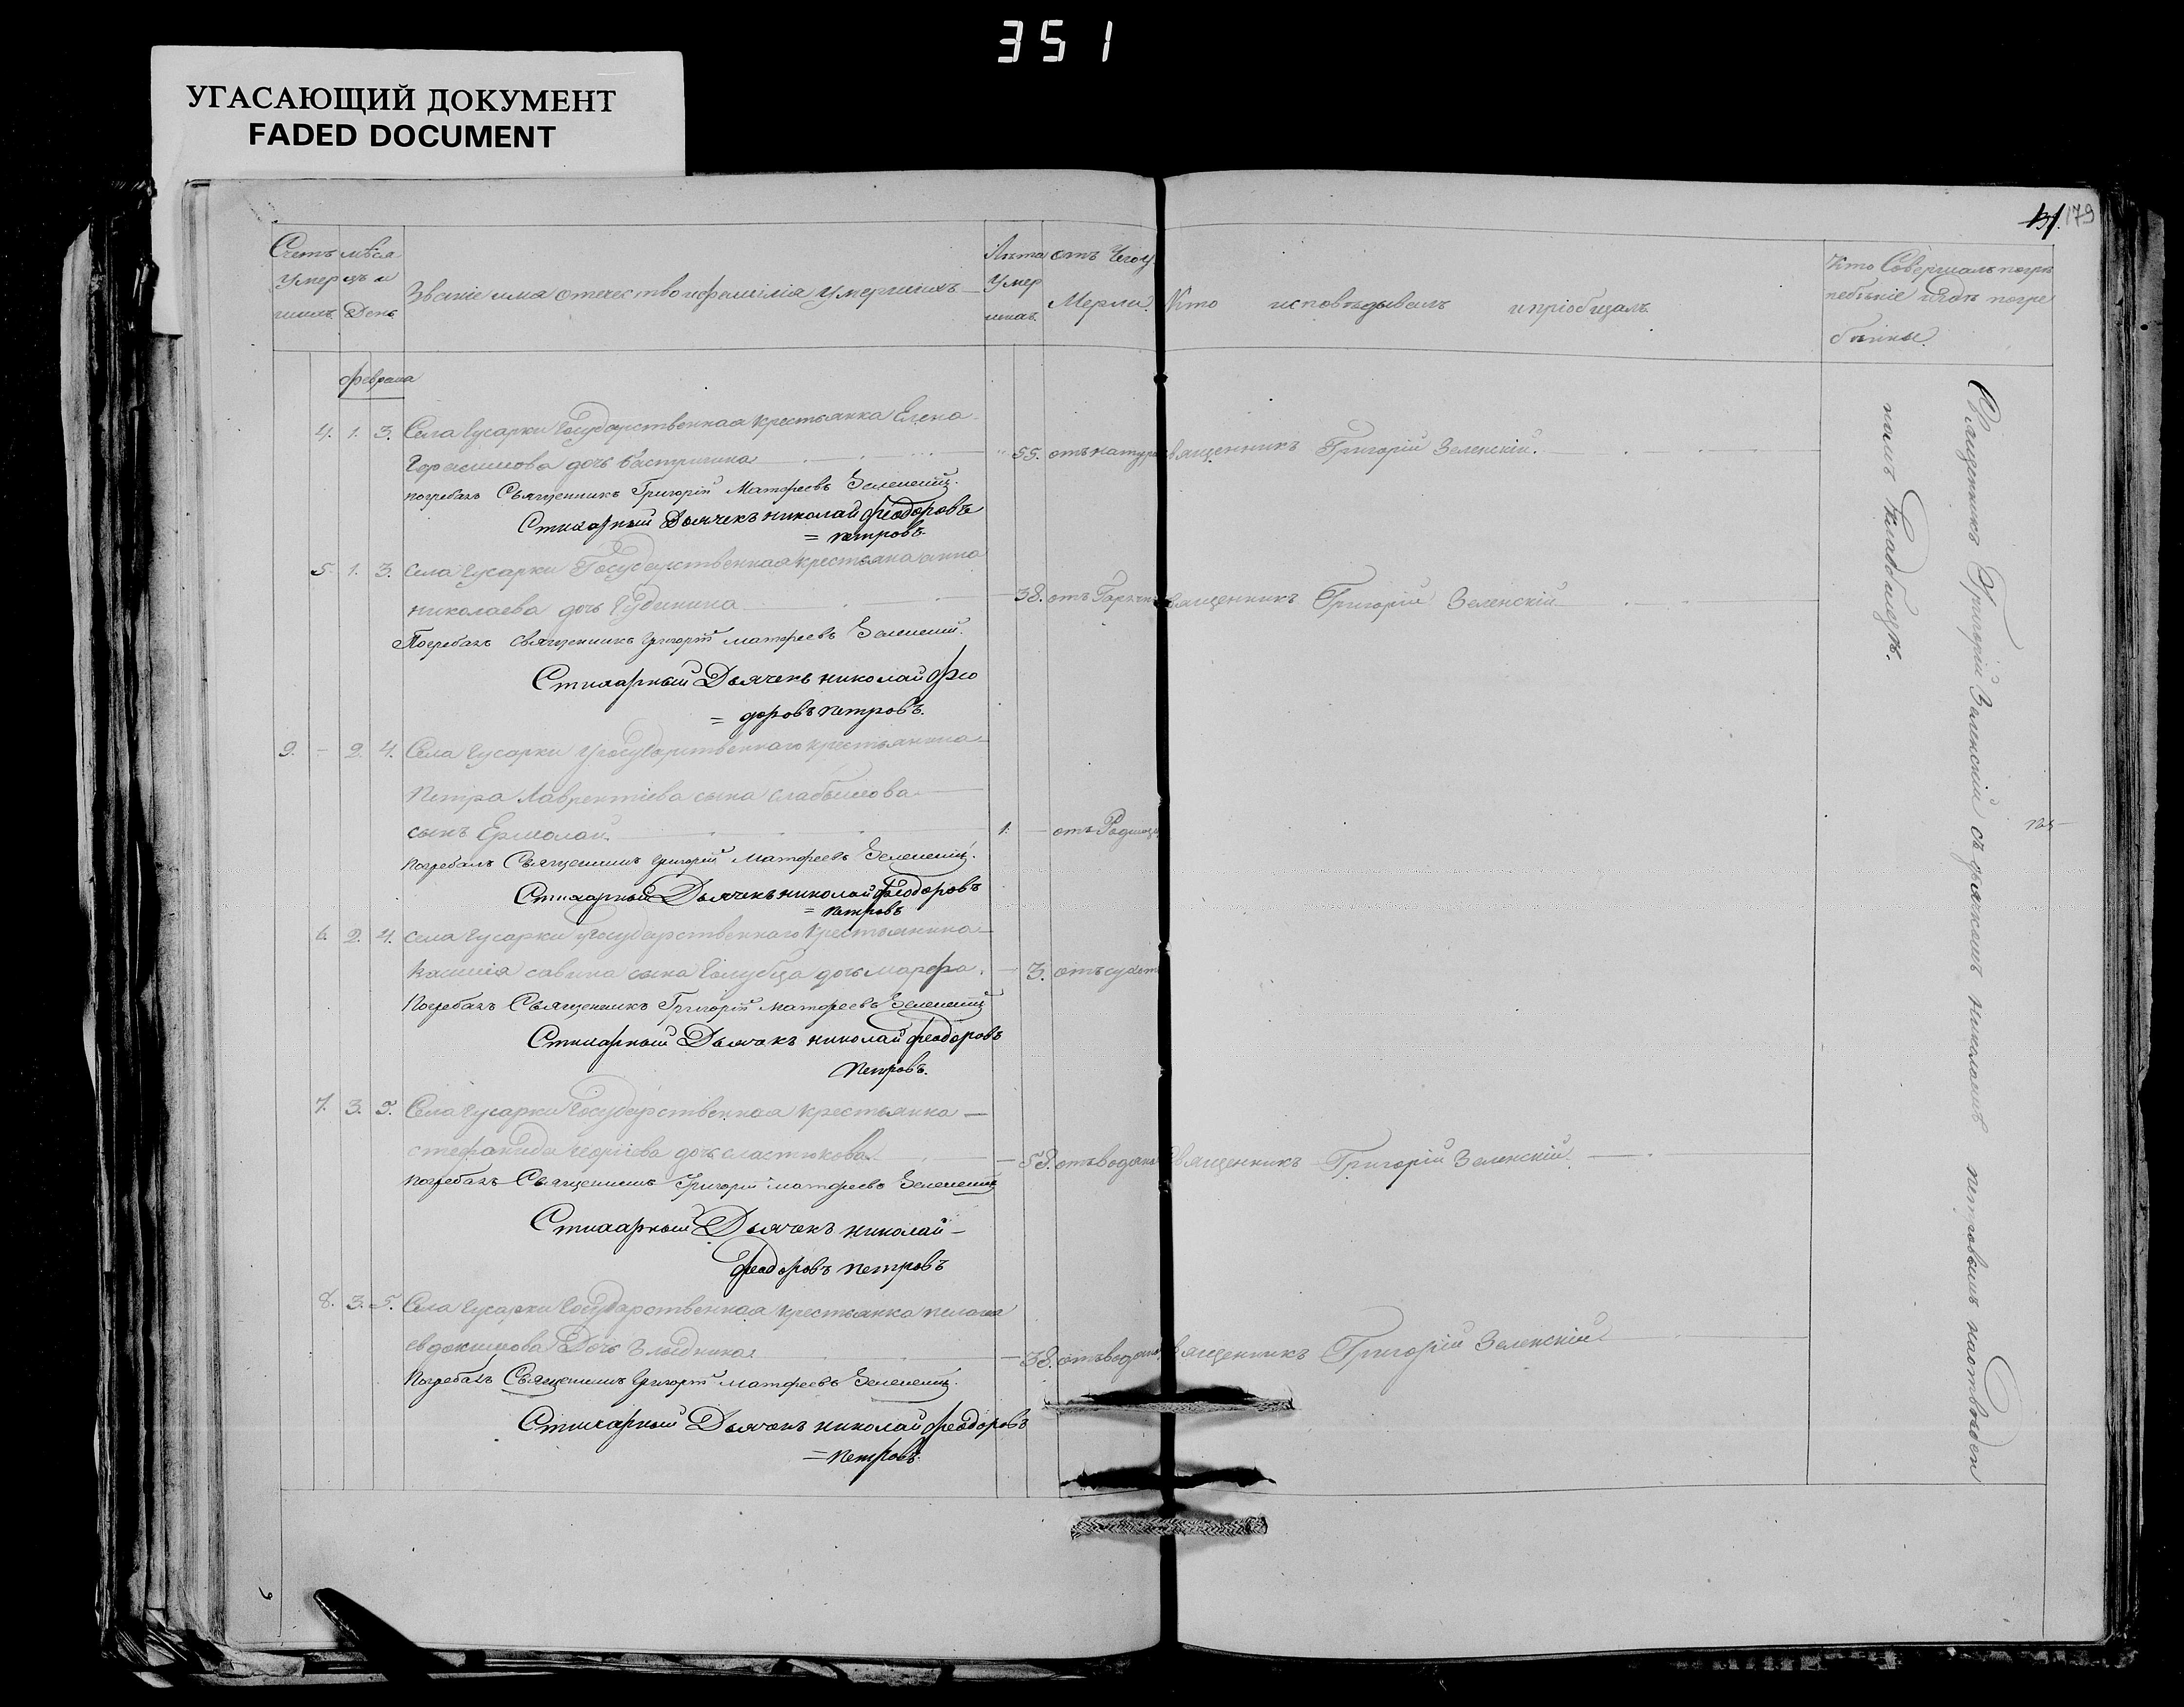 351
УГАСАЮЩИЙ ДОКУМЕНТ
FADED DOCUMENT
179
Счетъ умершихъ
мѣсяцъ и День
Званіе имя отечество и фамилія умершихъ
Лѣта Умершихъ
отъ Чего умерли
Кто исповѣдывалъ и пріобщалъ
Кто Совершалъ погребѣніе и гдѣ погребѣнны
Февраля
4. 1. 3. Села Гусарки Государственная крестьянка Елена
Герасимова дочь 55. отъ натур Священникъ Григорій Зеленскій.
погребалъ Священникъ Григорій Матфеевъ Зеленскій.
Стихарный Дьячекъ николай феодоровъ
= петровъ.
5. 1. 3. Села Гусарки Государственная крестьяка анна
николаева дочь Губинина 38. отъ Горячк Священникъ Григорій Зеленскій
Погребалъ священникъ Григорій матфеевъ Зеленскій.
Стихарный Дьячекъ николай Фео
= доровъ петровъ.
9. - 2. 4. Села Гусарки Государственнаго крестьянина
Петра Лаврентіева сына
сынъ Ермолай. 1. отъ Родимца
погребалъ Священникъ Григорій Матфеевъ Зеленскій.
Стихарный Дьячекъ николай феодоровъ
= петровъ
6. 2. 4. Села Гусарки Государственнаго Крестьянина
савина сына Голубца дочь марфа. 3. отъ сухот
Погребалъ Священникъ Григорій матфеевъ Зеленскій
Стихарный Дьячекъ николай феодоровъ
Петровъ.
7. 3. 5. Села Гусарки Государственная крестьянка
стефанида дочь сластюкова 58. отъ водяно Священникъ Григорій Зеленскій.
погребалъ Священникъ Григорій матфеевъ Зеленскій
Стихарный Дьячекъ николай
феодоровъ петровъ
8. 3. 5. Села Гусарки Государственная крестьянка пелагея
евдокимова Дочь 38. отъ водяно Священникъ Григорій Зеленскій.
Погребалъ Священникъ Григорій матфеевъ Зеленскій.
Стихарный Дьячекъ николай феодоровъ
= петровъ.
Священникъ Григорій Зеленскій съ дьячкомъ николаемъ петровымъ на отводен
номъ Кладбищѣ.